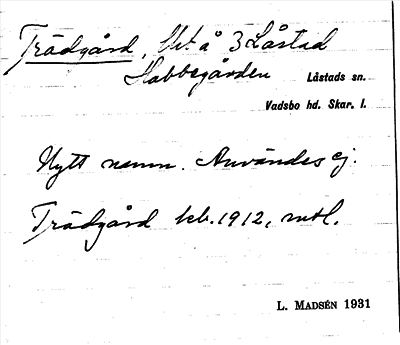 Trädgård, Ut å 3 Låstad
Stabbegården Låstads sn.
Vadsbo hd. Skar. l.
Nytt namn. Användes ej.
Trädgård kb. 1912, mtl.
L. MADSÉN 1931